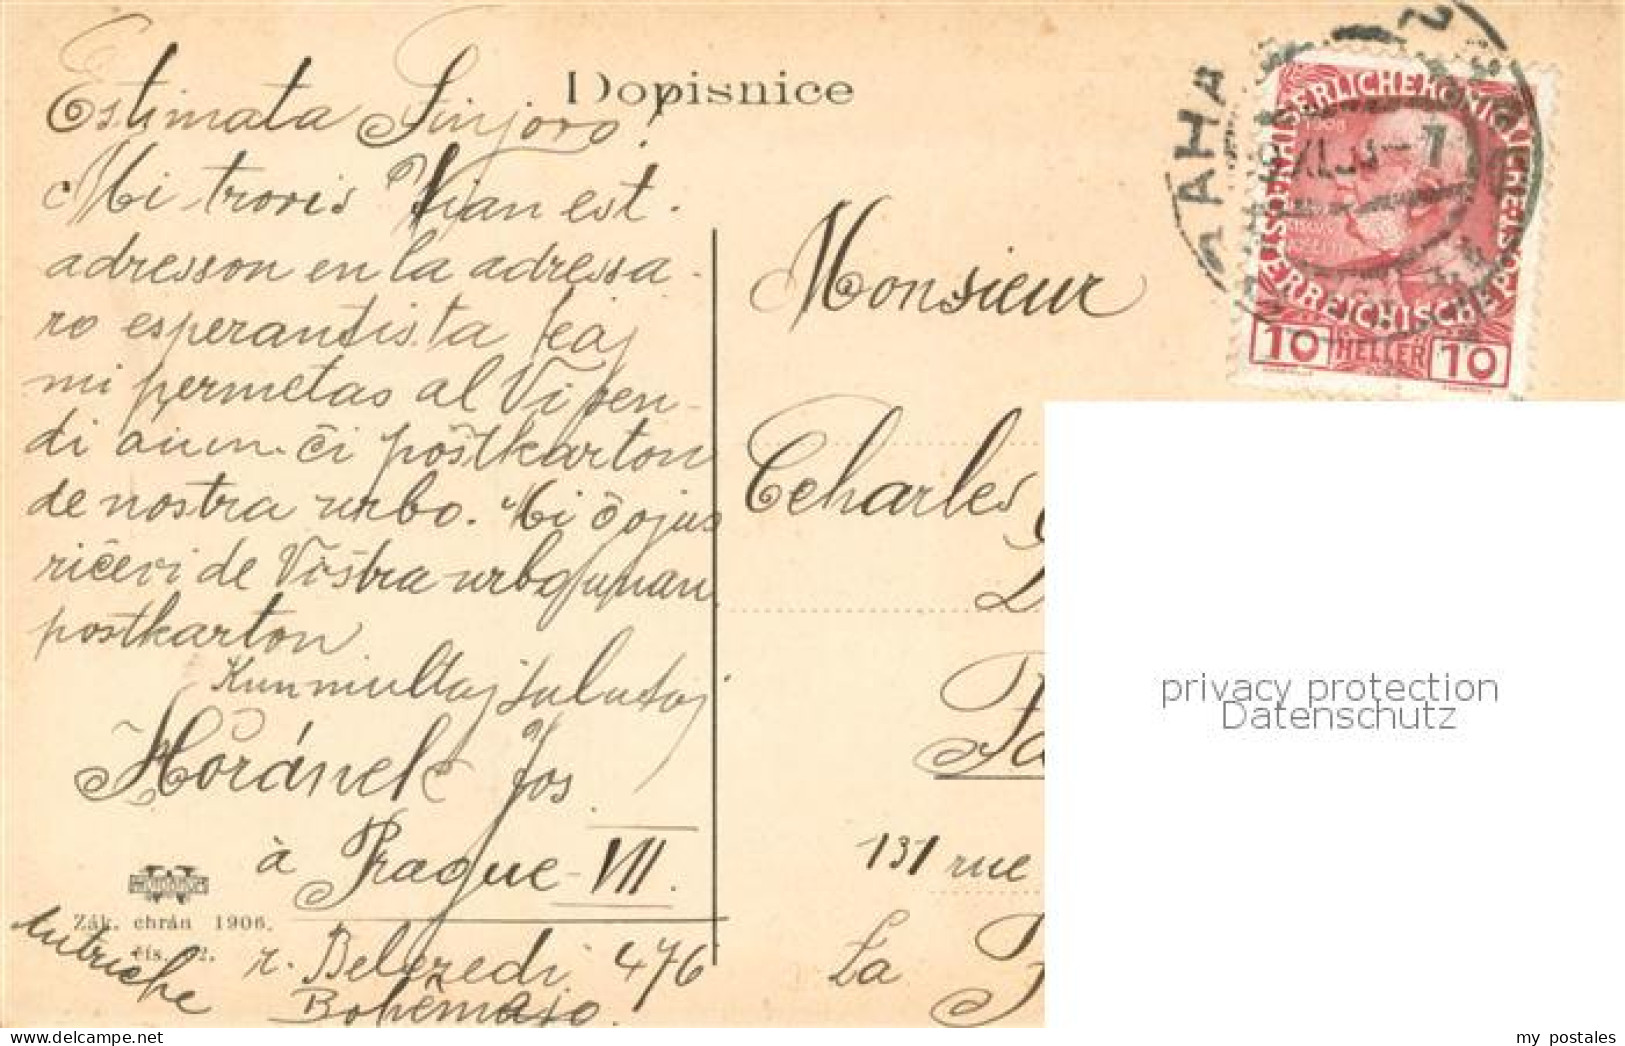 Dopisnice
Estimata Sinjoro!
Mi trovis Vian est.
adresson en la adressa-
ro esperantista kaj
mi permetas al Vi sen-
di aŭm. ĉi poŝtkarton
de nostra urbo. Mi ĝojus
riĉevi de Viŝtra urbo unan
postkarton
Kun multaj salutoj
Horánek Jos
à Prague VII.
r. Belcredi 476
Bohêmajo.
Autriche
Zák. chrán 1906.
čís.
Monsieur
Charles
131 rue
La
AHA
KAISERLICHE KÖNIGLICHE
ÖSTERREICHISCHE POST
1908
10 HELLER 10
privacy protection
Datenschutz
my postales